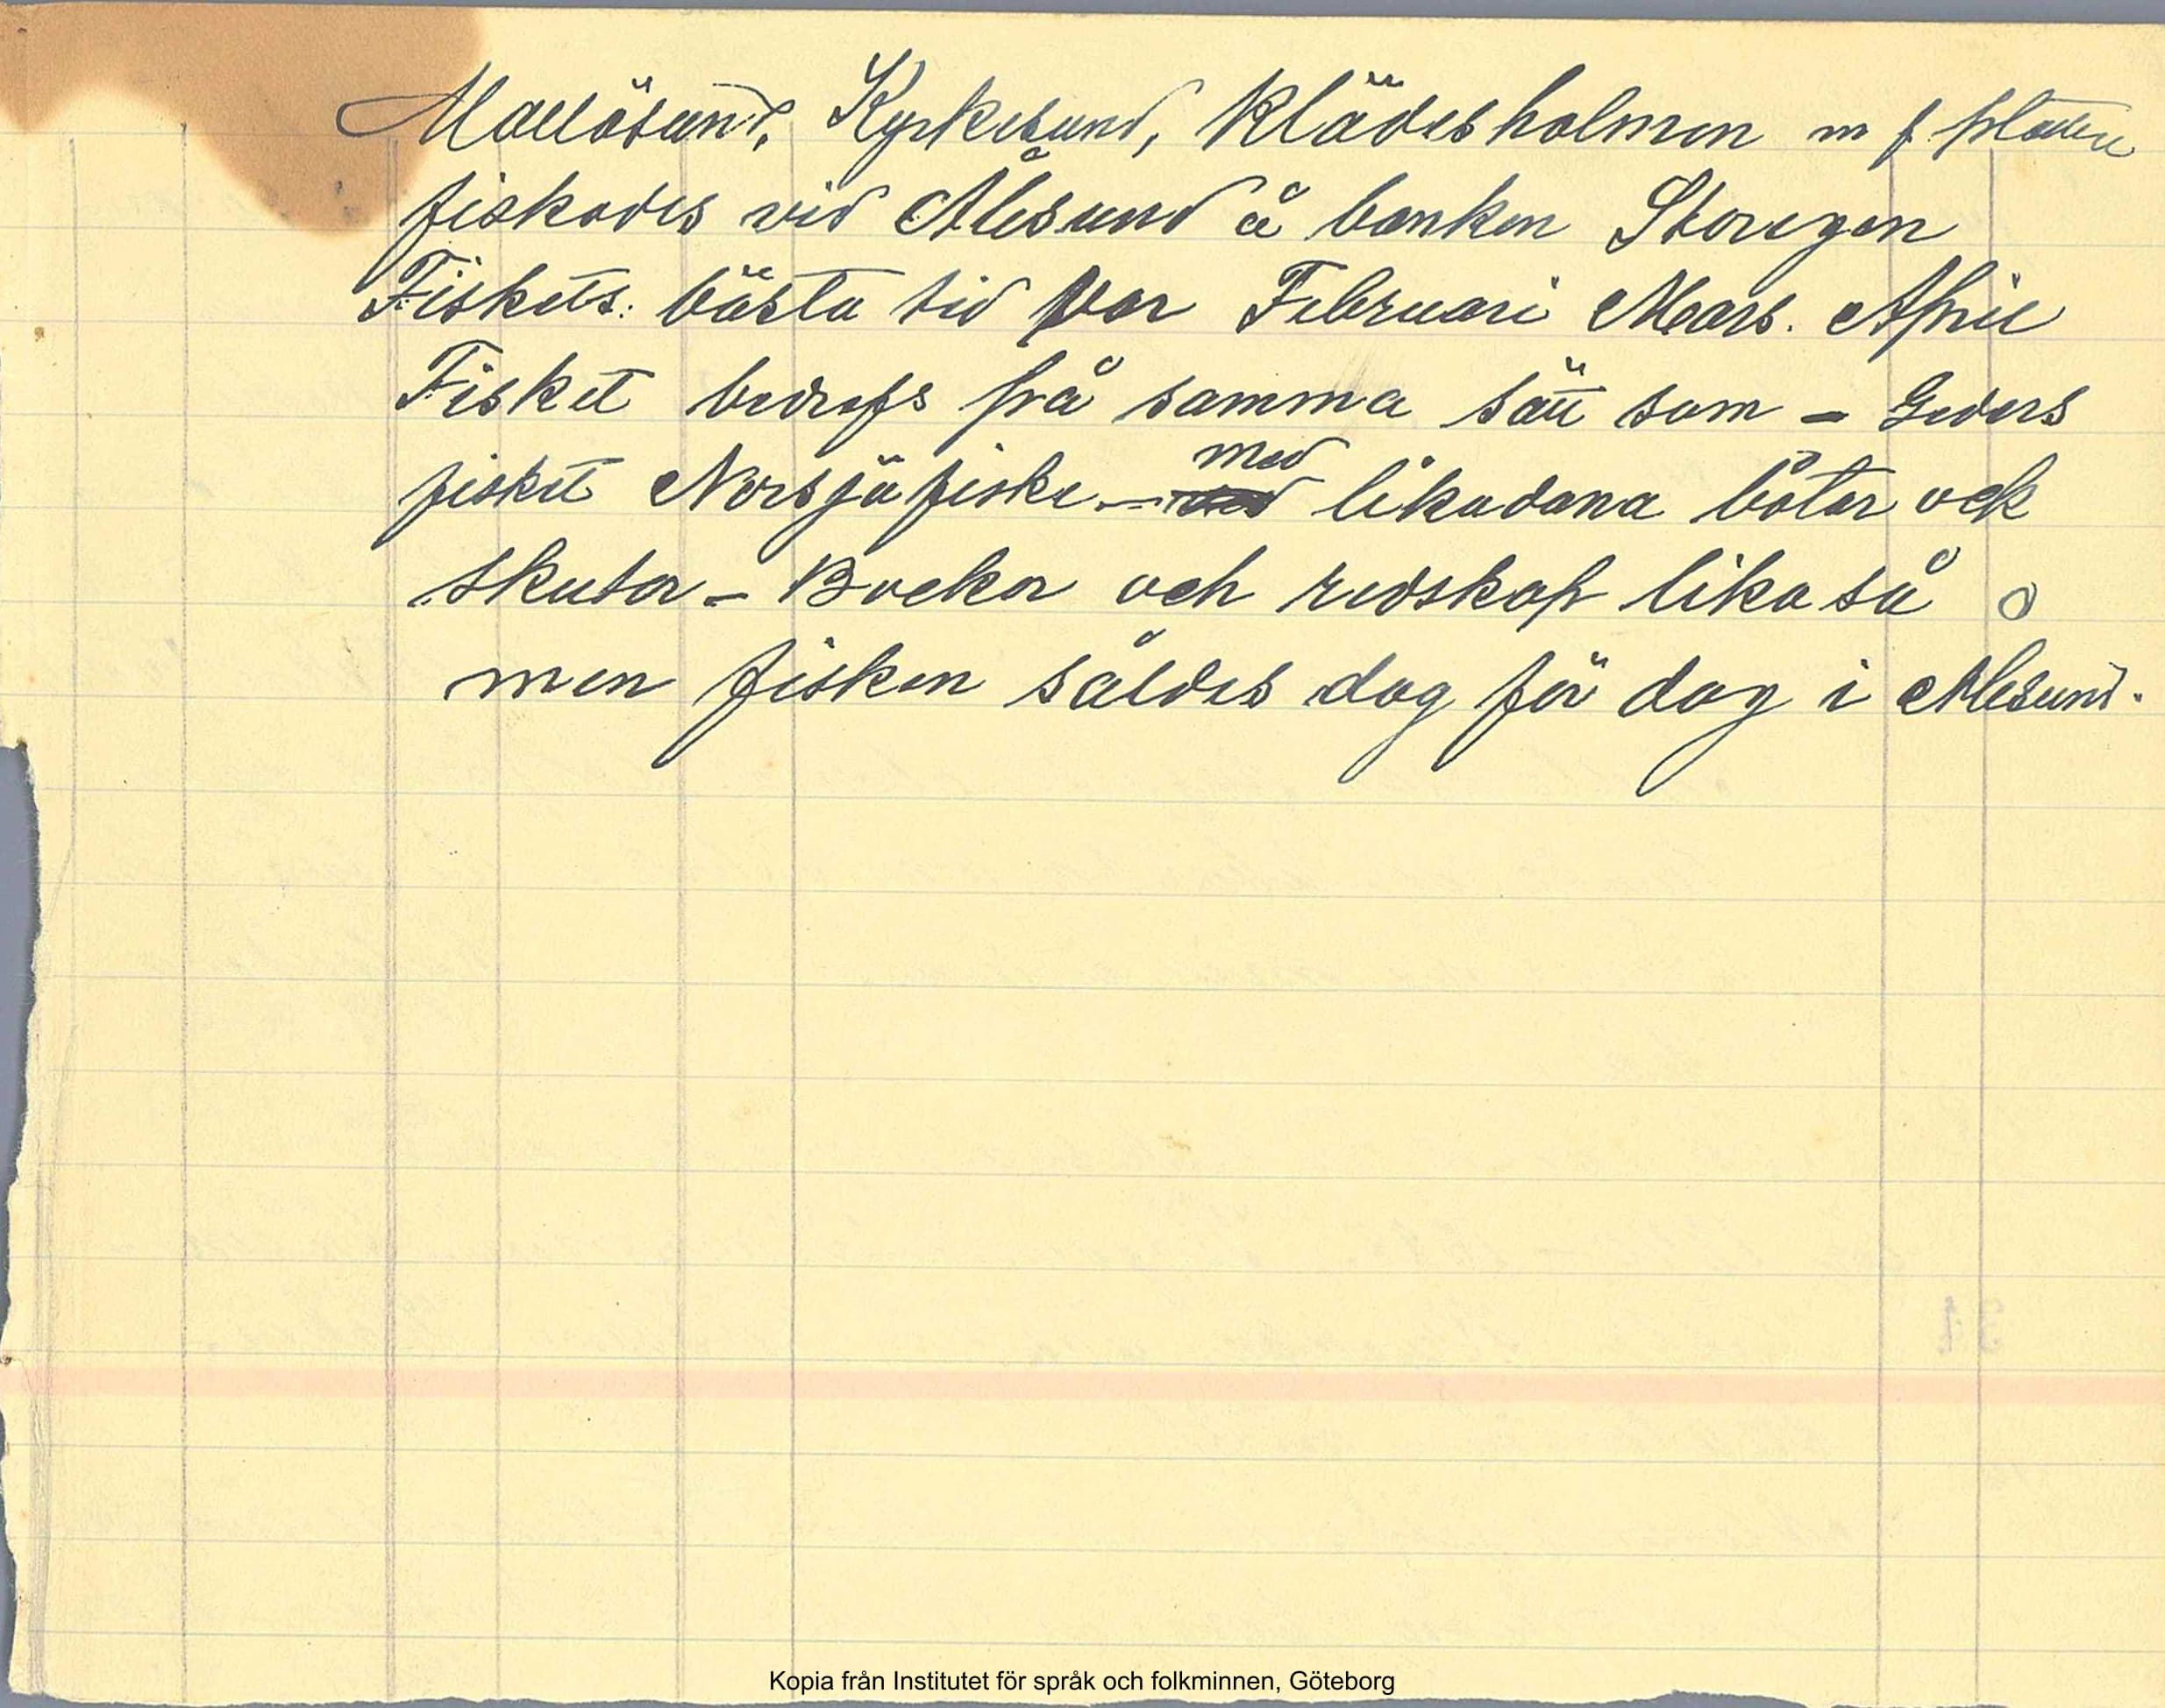 Mollösund, Kyrkesund, Klädesholmen m f platser
fiskades vid Ålesund å banken Storegen
Fiskets. bästa tid var Februari Mars. April
Fisket bedrefs på samma sätt som – Geders
fisket Norsjöfiske – med likadana båtar och
skutor – Backor och redskap lika så
men fisken såldes dag för dag i Alesund.
31
Kopia från Institutet för språk och folkminnen, Göteborg